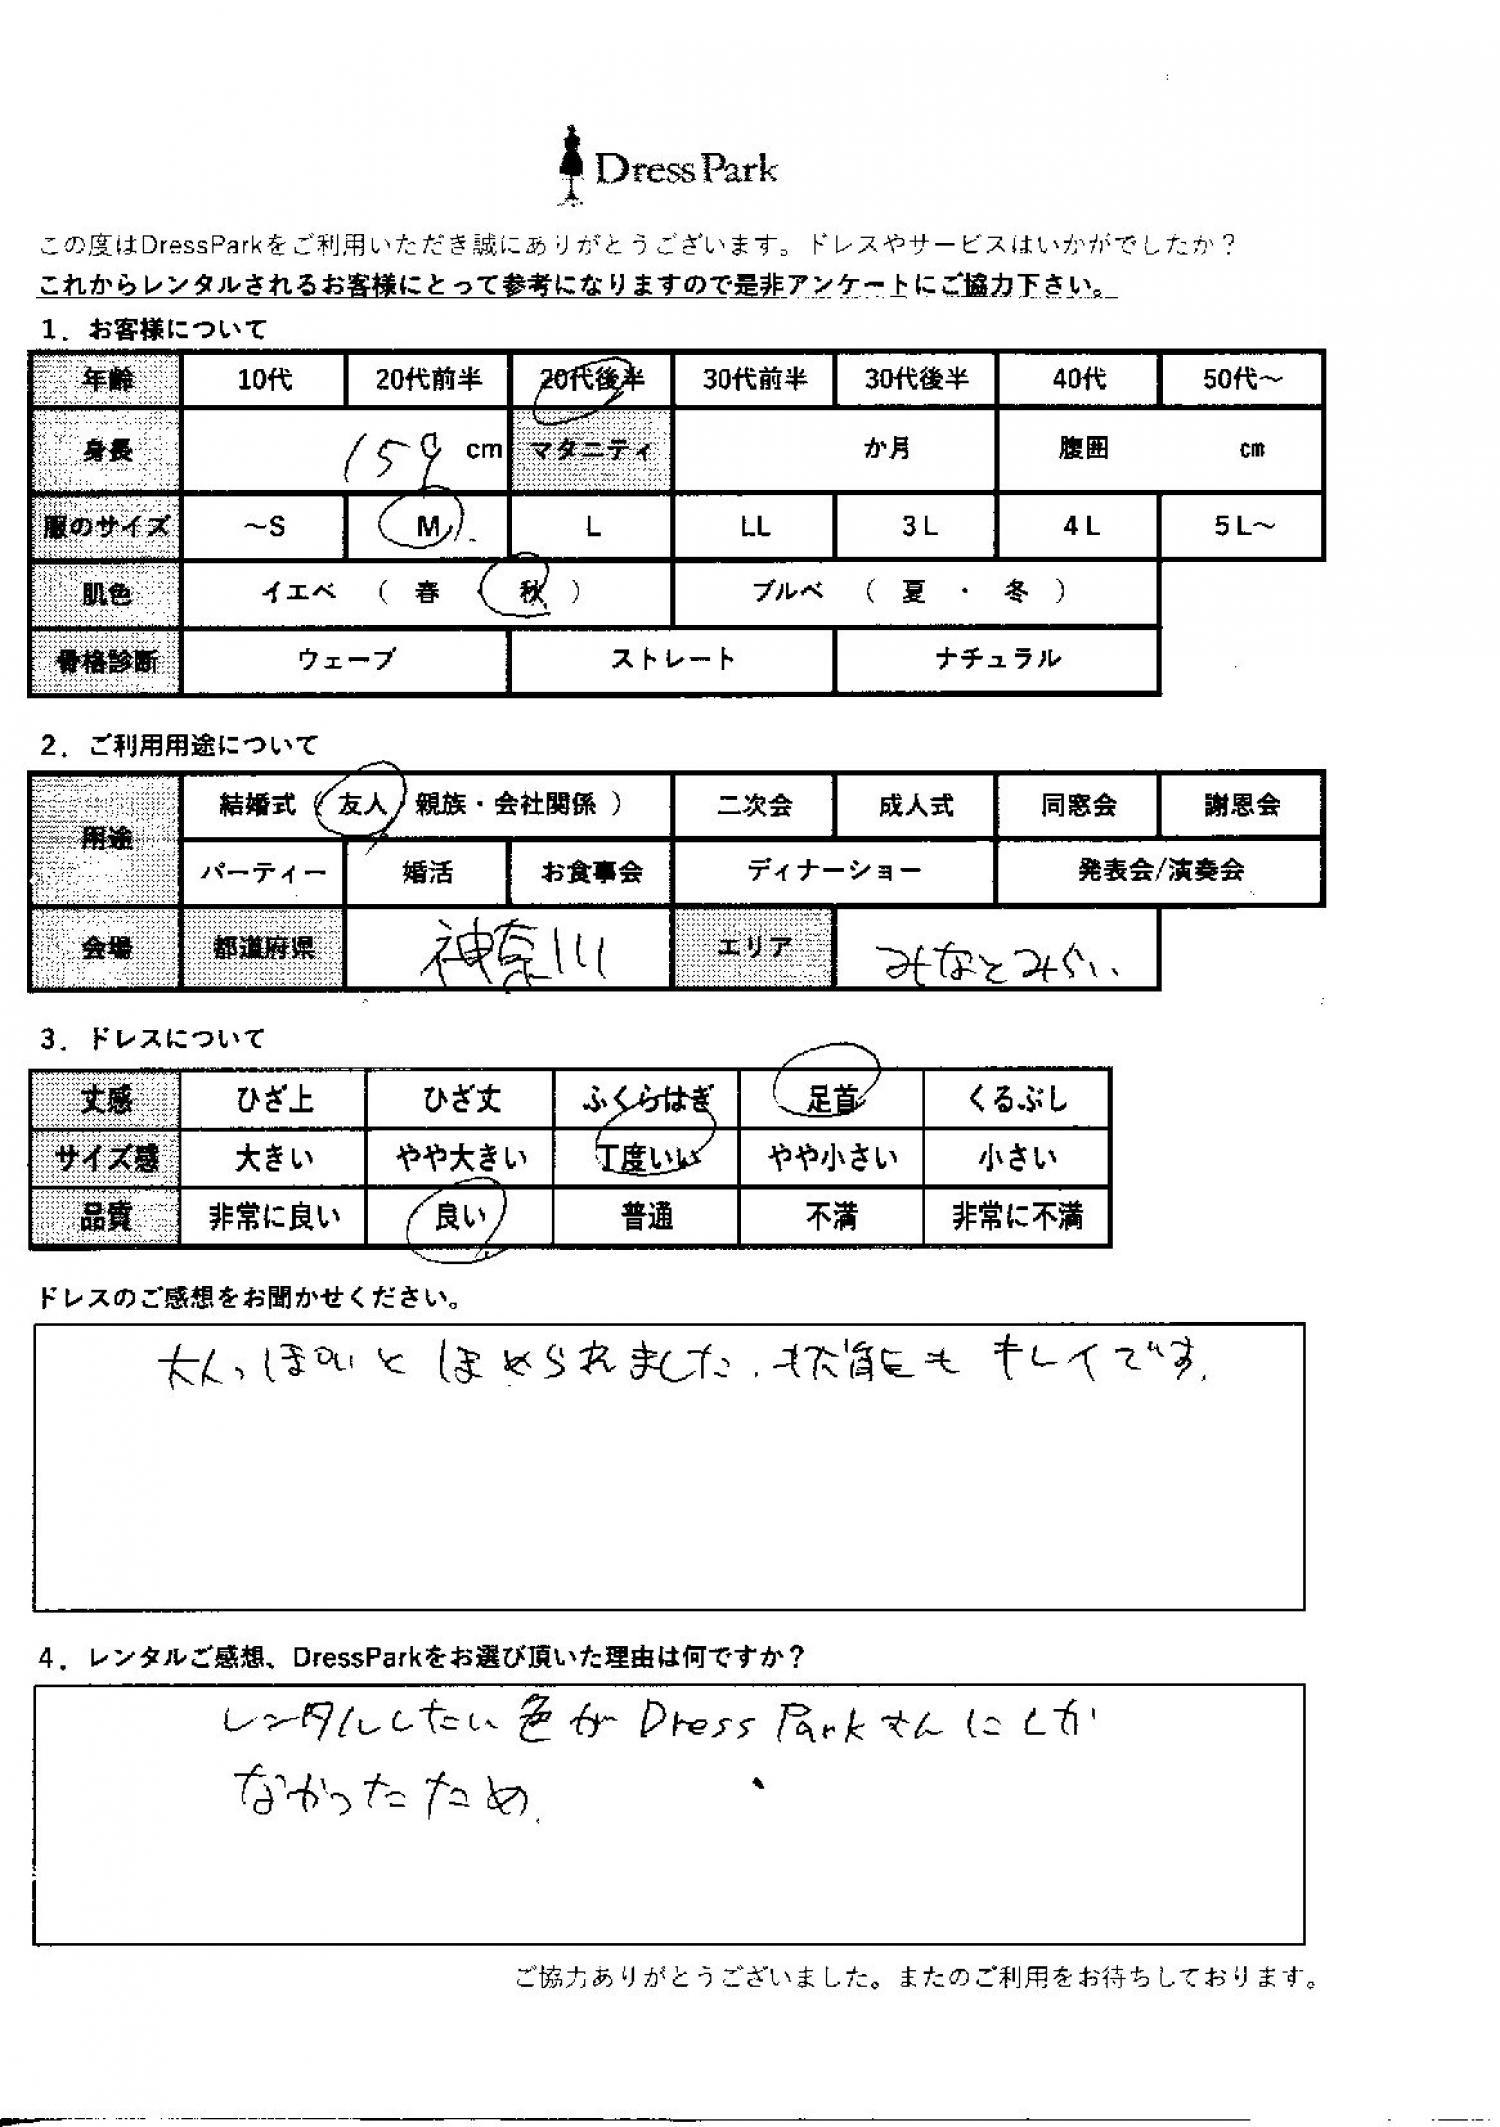 Dress Park
この度はDressParkをご利用いただき誠にありがとうございます。ドレスやサービスはいかがでしたか？
これからレンタルされるお客様にとって参考になりますので是非アンケートにご協力下さい。
1．お客様について
年齢 10代 20代前半 20代後半 30代前半 30代後半 40代 50代～
身長 159 cm マタニティ か月 腹囲 cm
服のサイズ ～S M L LL 3L 4L 5L～
肌色 イエベ （ 春 ・ 秋 ） ブルベ （ 夏 ・ 冬 ）
骨格診断 ウェーブ ストレート ナチュラル
2．ご利用用途について
用途 結婚式（ 友人・親族・会社関係 ） 二次会 成人式 同窓会 謝恩会
パーティー 婚活 お食事会 ディナーショー 発表会/演奏会
会場 都道府県 神奈川 エリア みなとみらい
3．ドレスについて
丈感 ひざ上 ひざ丈 ふくらはぎ 足首 くるぶし
サイズ感 大きい やや大きい 丁度いい やや小さい 小さい
品質 非常に良い 良い 普通 不満 非常に不満
ドレスのご感想をお聞かせください。
大人っぽいとほめられました. 状態もキレイです.
4．レンタルご感想、DressParkをお選び頂いた理由は何ですか？
レンタルしたい色がDress Parkさんにしか
なかったため.
ご協力ありがとうございました。またのご利用をお待ちしております。